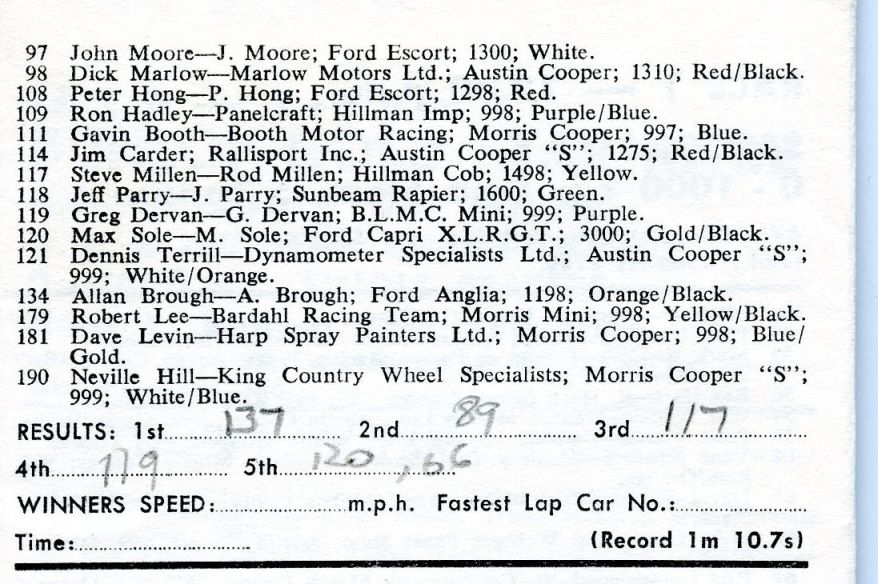 97 John Moore—J. Moore; Ford Escort; 1300; White.
98 Dick Marlow—Marlow Motors Ltd.; Austin Cooper; 1310; Red/Black.
108 Peter Hong—P. Hong; Ford Escort; 1298; Red.
109 Ron Hadley—Panelcraft; Hillman Imp; 998; Purple/Blue.
111 Gavin Booth—Booth Motor Racing; Morris Cooper; 997; Blue.
114 Jim Carder; Rallisport Inc.; Austin Cooper "S"; 1275; Red/Black.
117 Steve Millen—Rod Millen; Hillman Cob; 1498; Yellow.
118 Jeff Parry—J. Parry; Sunbeam Rapier; 1600; Green.
119 Greg Dervan—G. Dervan; B.L.M.C. Mini; 999; Purple.
120 Max Sole—M. Sole; Ford Capri X.L.R.G.T.; 3000; Gold/Black.
121 Dennis Terrill—Dynamometer Specialists Ltd.; Austin Cooper "S";
999; White/Orange.
134 Allan Brough—A. Brough; Ford Anglia; 1198; Orange/Black.
179 Robert Lee—Bardahl Racing Team; Morris Mini; 998; Yellow/Black.
181 Dave Levin—Harp Spray Painters Ltd.; Morris Cooper; 998; Blue/
Gold.
190 Neville Hill—King Country Wheel Specialists; Morris Cooper "S";
999; White/Blue.
RESULTS: 1st 137 2nd 89 3rd 117
4th 179 5th 120, 66
WINNERS SPEED: m.p.h. Fastest Lap Car No.:
Time: (Record 1m 10.7s)